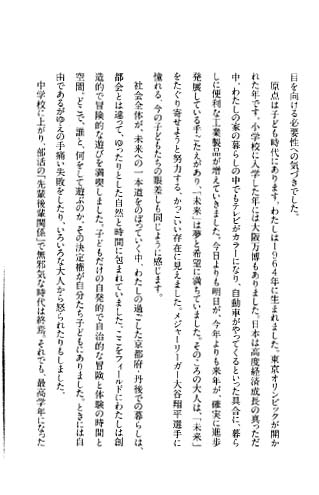 目を向ける必要性への気づきでした。
原点は子ども時代にあります。わたしは1964年に生まれました。東京オリンピックが開か
れた年です。小学校に入学した年には大阪万博もありました。日本は高度経済成長の真っただ
中、わたしの家の暮らしの中でもテレビがカラーになり、自動車がやってくるといった具合に、暮ら
しに便利な工業製品が増えていきました。今日よりも明日が、今年よりも来年が、確実に進歩
発展している手ごたえがあり、「未来」は夢と希望に満ちていました。そのころの大人は、「未来」
をたぐり寄せようと努力する、かっこいい存在に見えました。メジャーリーガー大谷翔平選手に
憧れる、今の子どもたちの眼差しも同じように感じます。
社会全体が、未来への一本道をのぼっていく中、わたしの過ごした京都府・丹後での暮らしは、
都会とは違って、ゆったりとした自然と時間に包まれていました。ここをフィールドにわたしは創
造的で冒険的な遊びを満喫しました。子どもだけの自発的で自治的な冒険と体験の時間と
空間。どこで、誰と、何をして遊ぶのか、その決定権が自分たち子どもにありました。ときには自
由であるがゆえの手痛い失敗をしたり、いろいろな大人から怒られたりもしました。
中学校に上がり、部活の「先輩後輩関係」で無邪気な時代は終焉。それでも、最高学年になった